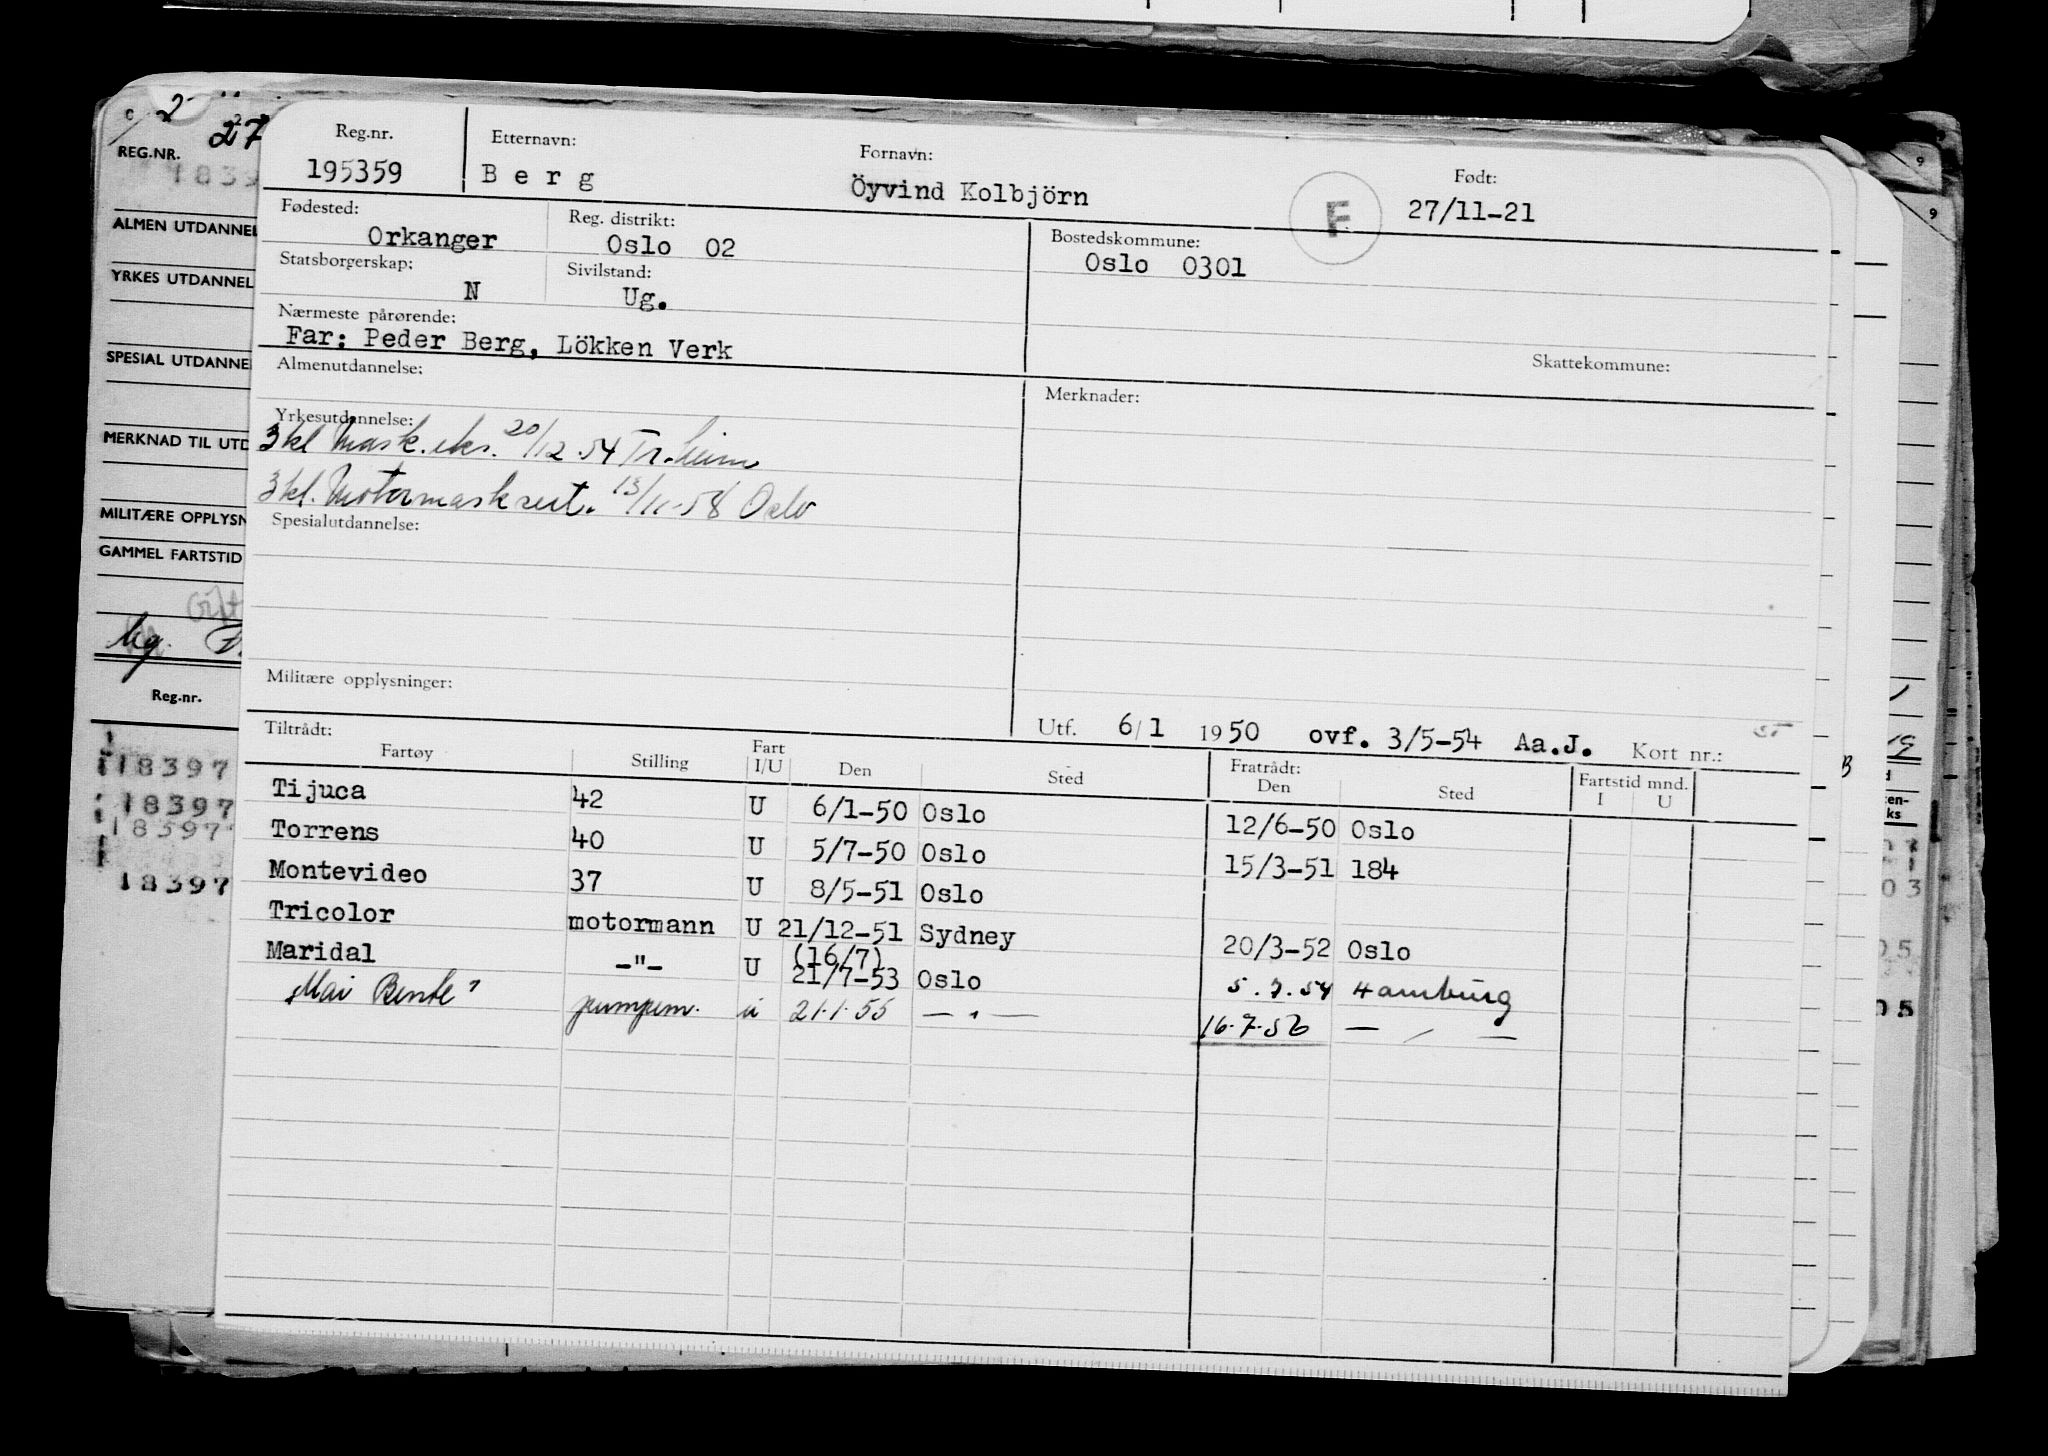 Reg.nr. Etternavn: Fornavn: Født:
195359 B e r g Öyvind Kolbjörn F 27/11-21
Fødested: Reg. distrikt: Bostedskommune:
Orkanger Oslo 02 Oslo 0301
Statsborgerskap: Sivilstand:
N Ug.
Nærmeste pårørende:
Far: Peder Berg, Lökken Verk Skattekommune:
Almenutdannelse: Merknader:
Yrkesutdannelse:
3kl Mask.eks. 20/12.54 Tr.heim
3kl. Motormask sert. 13/11-58 Oslo
Spesialutdannelse:
Militære opplysninger:
Utf. 6/1 1950 ovf. 3/5-54 Aa.J. Kort nr.:
Tiltrådt: Fratrådt:
Fartøy Stilling Fart I/U Den Sted Den Sted Fartstid mnd. I U
Tijuca 42 U 6/1-50 Oslo 12/6-50 Oslo
Torrens 40 U 5/7-50 Oslo 15/3-51 184
Montevideo 37 U 8/5-51 Oslo
Tricolor motormann U 21/12-51 Sydney 20/3-52 Oslo
(16/7)
Maridal -"- U 21/7-53 Oslo 5.7.54 Hamburg
Mai Bente pumpem. u 21.1.55 — " — 16.7.56 — " —
2
27
REG.NR.
1839
ALMEN UTDANNEL
YRKES UTDANNEL
SPESIAL UTDANNE
MERKNAD TIL UTD
MILITÆRE OPPLYSN
GAMMEL FARTSTID
Gift
ug.
Reg.nr.
18397
18397
18397
18397
9
9
B